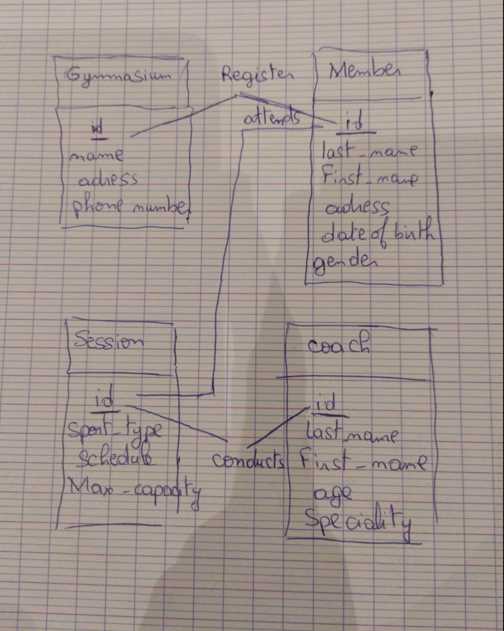 Gymnasium
id
name
adress
phone number
Register
attends
Member
id
last_name
First_name
adress
date of birth
gender
Session
id
Sport_type
Schedule
Max_capacity
conducts
coach
id
last_name
First_name
age
Speciality